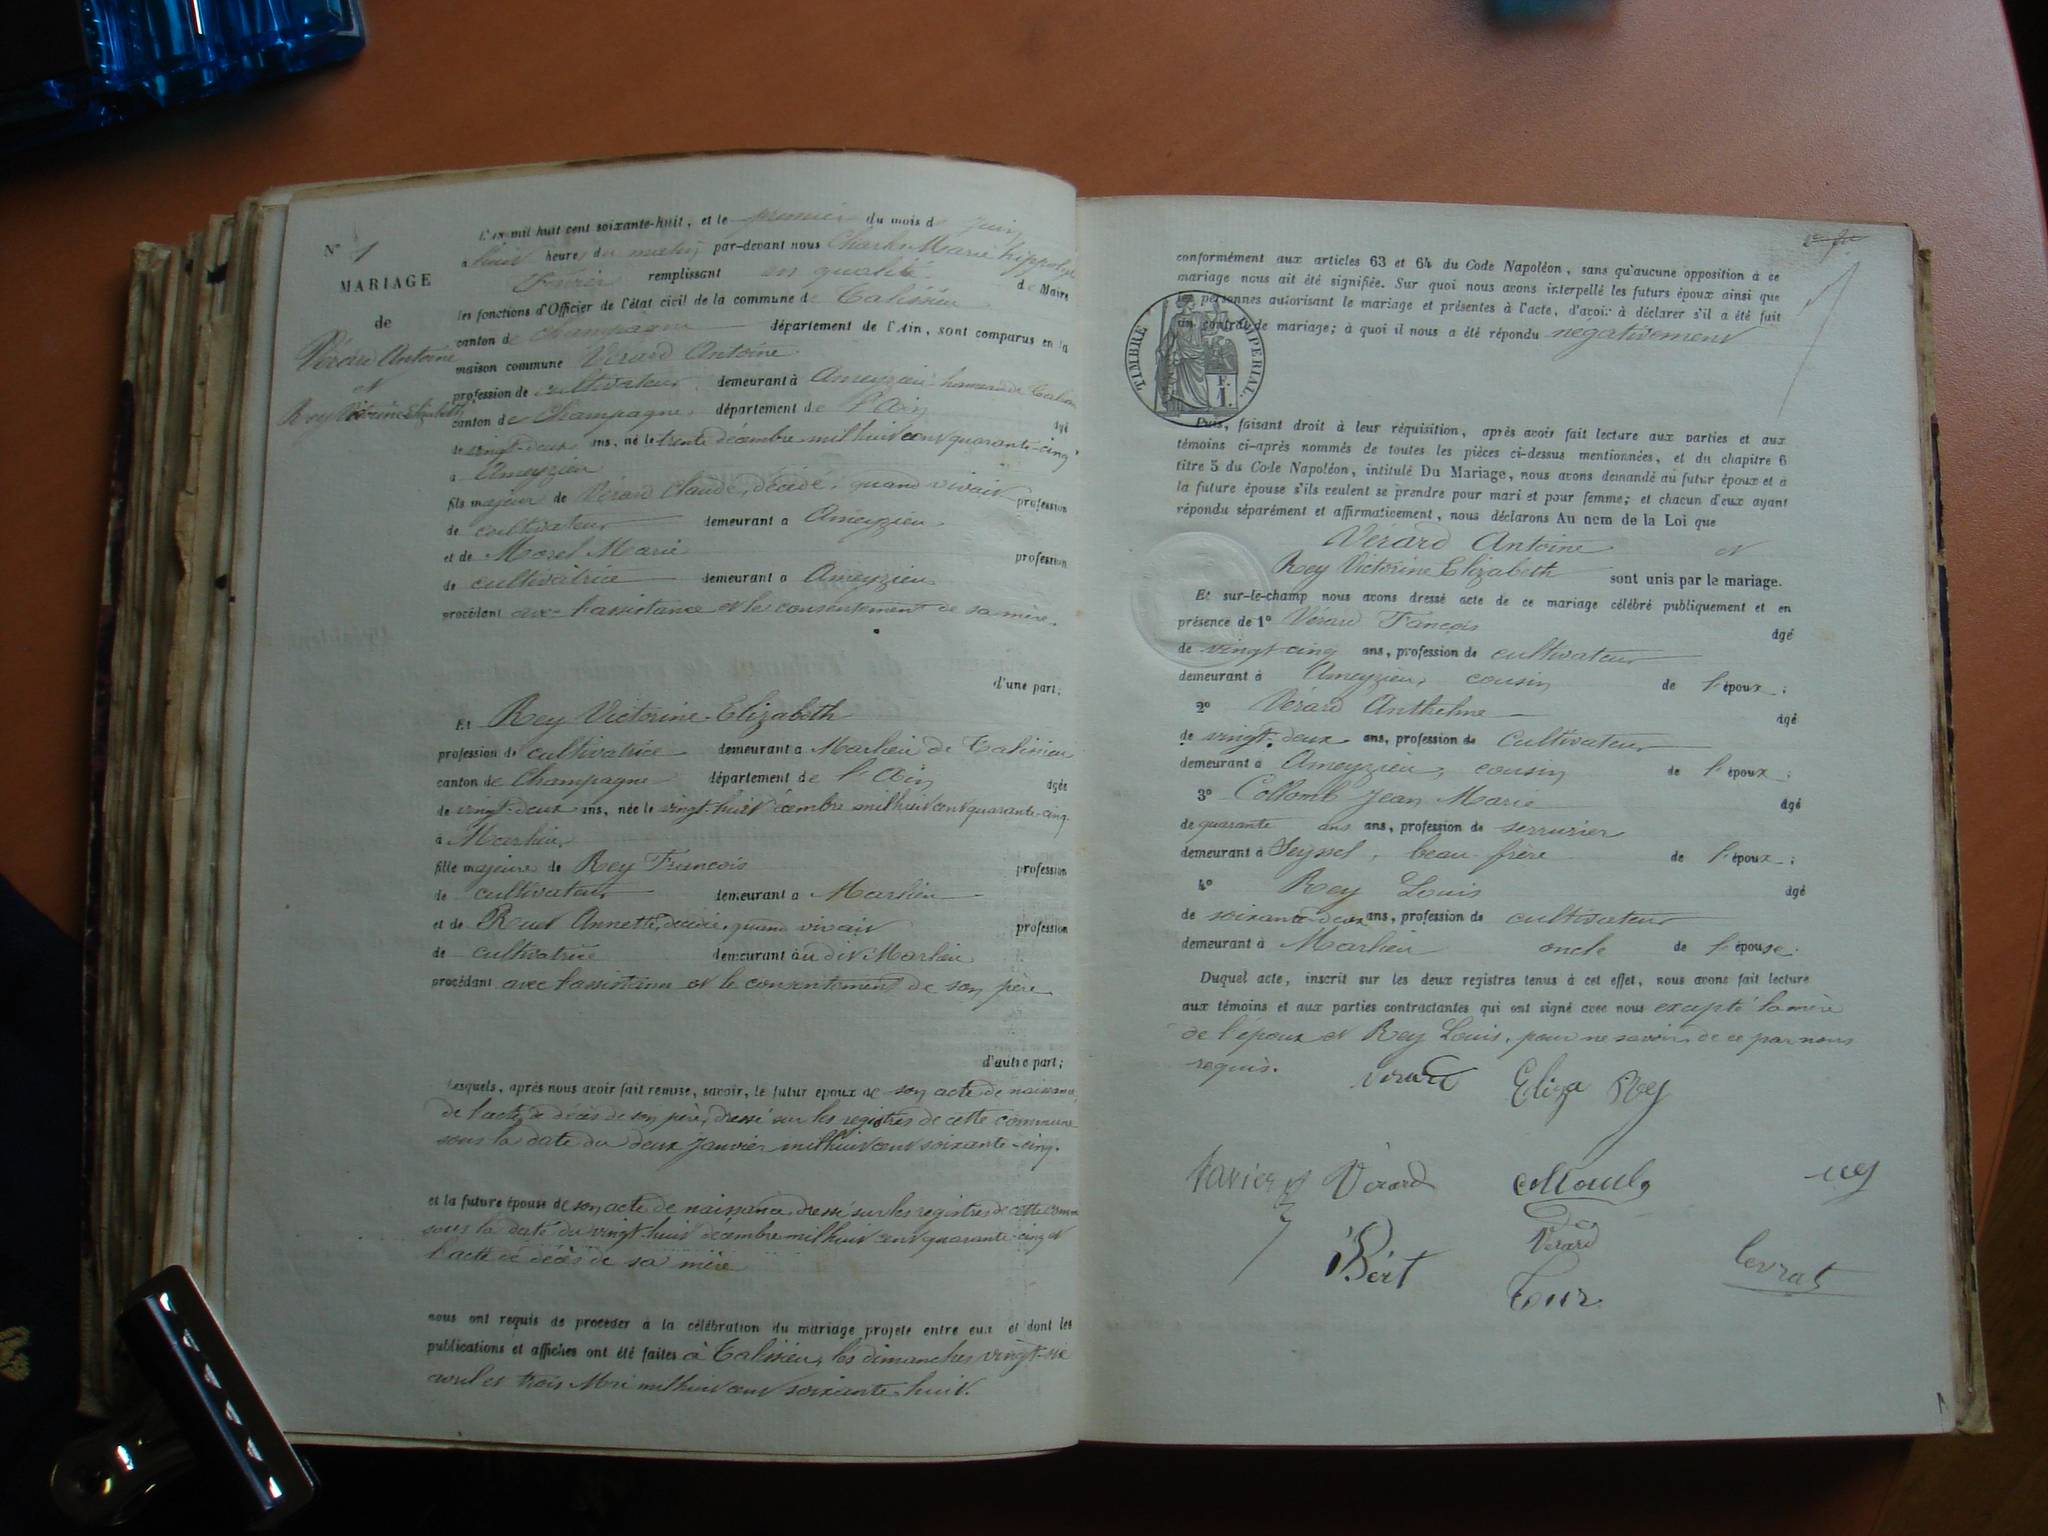 N° 1
MARIAGE
de
Vérard Antoine
et
Rey Victorine Elizabeth
L'AN mil huit cent soixante-huit, et le premier du mois de Juin
à huit heures du matin, par-devant nous Charles Marie hippolyte
remplissant en qualité de Maire
les fonctions d'Officier de l'état civil de la commune de Talissieu
canton de Champagne département de l'Ain, sont comparus en la
maison commune Vérard Antoine
profession de cultivateur demeurant à Ameyzieu hameau de
canton de Champagne, département de l'Ain âgé
de vingt-deux ans, né le trente décembre mil huit cent quarante-cinq
à Ameyzieu
fils majeur de Vérard Claude, décédé, quand vivait profession
de cultivateur demeurant à Ameyzieu
et de Morel Marie profession
de cultivatrice demeurant à Ameyzieu
procédant avec l'assistance et le consentement de sa mère.
d'une part;
Et Rey Victorine-Elizabeth
profession de cultivatrice demeurant à Marlieu de Talissieu
canton de Champagne département de l'Ain âgée
de vingt-deux ans, née le vingt-huit décembre mil huit cent quarante-cinq
à Marlieu,
fille majeure de Rey François profession
de cultivateur demeurant à Marlieu
et de Annette, décédée, quand vivait profession
de cultivatrice demeurant au dit Marlieu
procédant avec l'assistance et le consentement de son père
d'autre part;
Lesquels, après nous avoir fait remise, savoir, le futur époux de son acte de naissance,
de l'acte de décès de son père, dressé sur les registres de cette commune
sous la date du deux Janvier mil huit cent soixante-cinq.
et la future épouse de son acte de naissance, dressé sur les registres de cette commune
sous la date du vingt-huit décembre mil huit cent quarante-cinq et
l'acte de décès de sa mère
nous ont requis de procéder à la célébration du mariage projeté entre eux et dont les
publications et affiches ont été faites à Talissieu, les dimanches vingt-six
avril et trois Mai mil huit cent soixante-huit.
conformément aux articles 63 et 64 du Code Napoléon, sans qu'aucune opposition à ce
mariage nous ait été signifiée. Sur quoi nous avons interpellé les futurs époux ainsi que
les personnes autorisant le mariage et présentes à l'acte, d'avoir à déclarer s'il a été fait
un contrat de mariage; à quoi il nous a été répondu négativement
TIMBRE IMPÉRIAL.
F.
1.
Puis, faisant droit à leur réquisition, après avoir fait lecture aux parties et aux
témoins ci-après nommés de toutes les pièces ci-dessus mentionnées, et du chapitre 6
titre 5 du Code Napoléon, intitulé Du Mariage, nous avons demandé au futur époux et à
la future épouse s'ils veulent se prendre pour mari et pour femme; et chacun d'eux ayant
répondu séparément et affirmativement, nous déclarons Au nom de la Loi que
Vérard Antoine et
Rey Victorine Elizabeth sont unis par le mariage.
Et sur-le-champ nous avons dressé acte de ce mariage célébré publiquement et en
présence de 1° Vérard Fançois âgé
de vingt cinq ans, profession de cultivateur
demeurant à Ameyzieu, cousin de l'époux;
2° Vérard Anthelme âgé
de vingt-deux ans, profession de cultivateur
demeurant à Ameyzieu, cousin de l'époux;
3° Collomb Jean Marie âgé
de quarante ans ans, profession de serrurier
demeurant à Seyssel, beau frère de l'époux;
4° Rey Louis âgé
de soixante-deux ans, profession de cultivateur
demeurant à Marlieu oncle de l'épouse.
Duquel acte, inscrit sur les deux registres tenus à cet effet, nous avons fait lecture
aux témoins et aux parties contractantes qui ont signé avec nous excepté la mère
de l'époux et Rey Louis, pour ne savoir, de ce par nous
requis. Vérard Eliza Rey
Vérard Collomb rey
Vérard
Bért Levrat
Tour